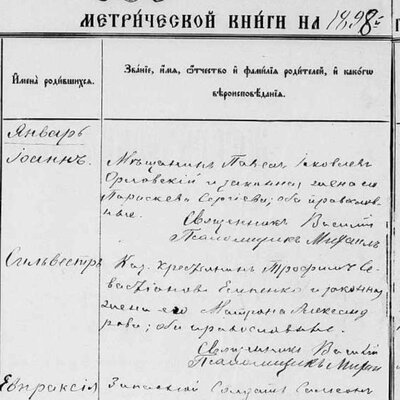 МЕТРИ́ЧЕСКОЙ КНИ́ГИ НА 1898й
Имена̀ роди́вшихся.
Зва́нїе, и́мя, о́тчество и фами́лїя роди́телей, и како́гѡ вѣроисповѣ́данїя.
Январь
Іоаннъ.
Мѣщанинъ Павелъ Яковлевъ
Орловскій и законная жена его
Параскева Сергіева; оба православ
ные.
Священникъ Василій
Псаломщикъ Михаилъ
Сильвестръ
Каз. крестьянинъ Трофимъ Се
вастіановъ Еще​нко и законная
жена его Матрона Александ
рова; оба православные.
Священникъ Василій
Псаломщикъ Михаи
Евпраксія
Запасный Солдатъ Симеонъ